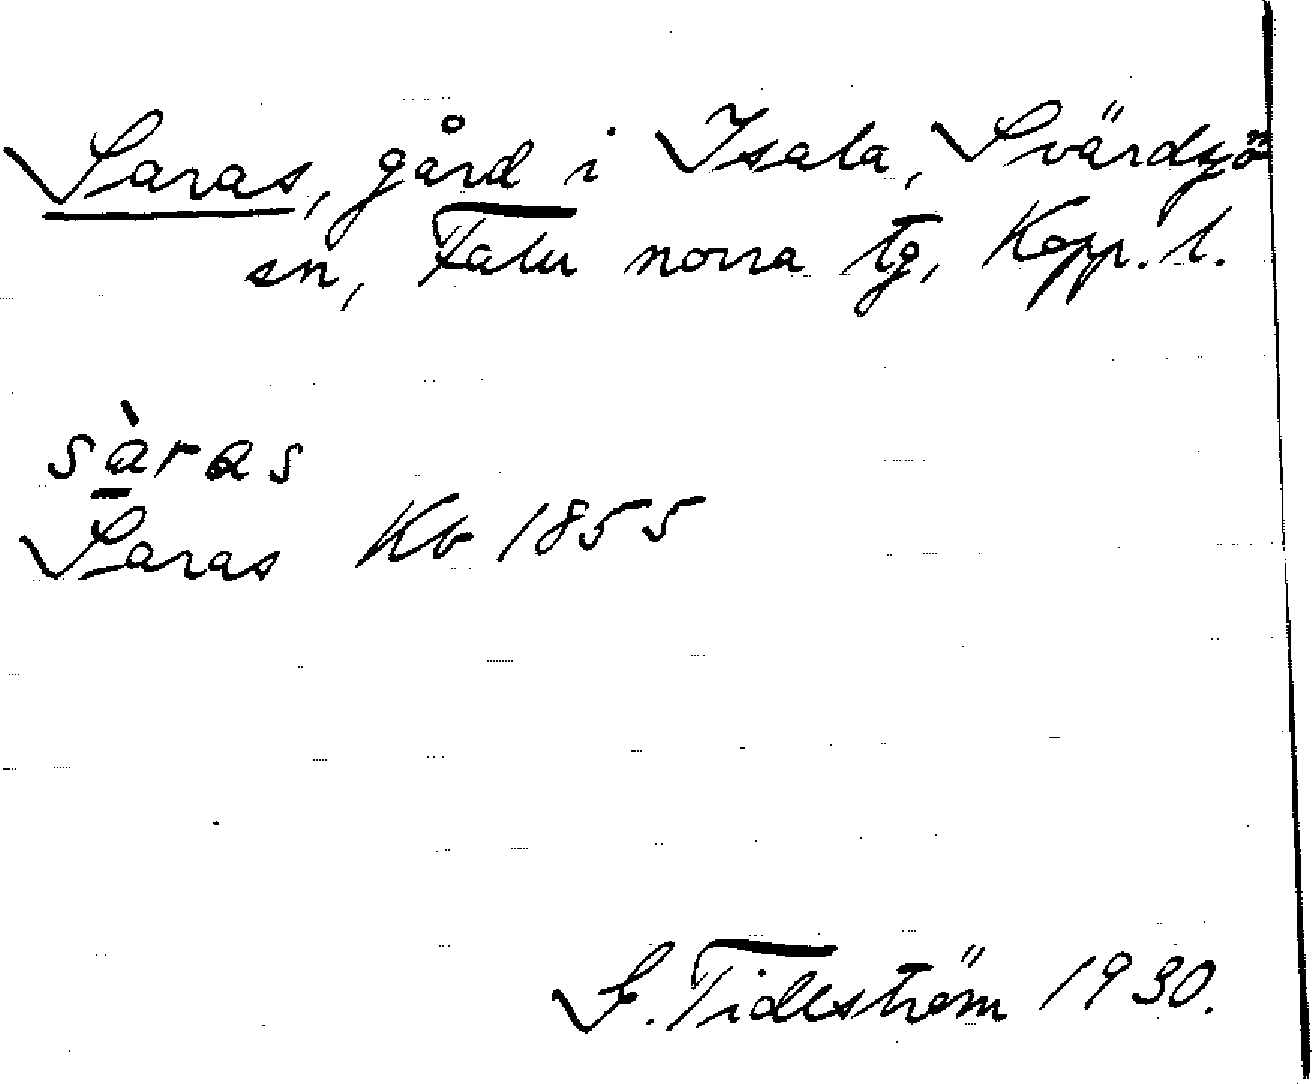 Saras, gård i Isala, Svärdsjö
sn, Falu norra tg, Kopp. l.
sàras
Saras Kb 1855
S. Tideström 1930.